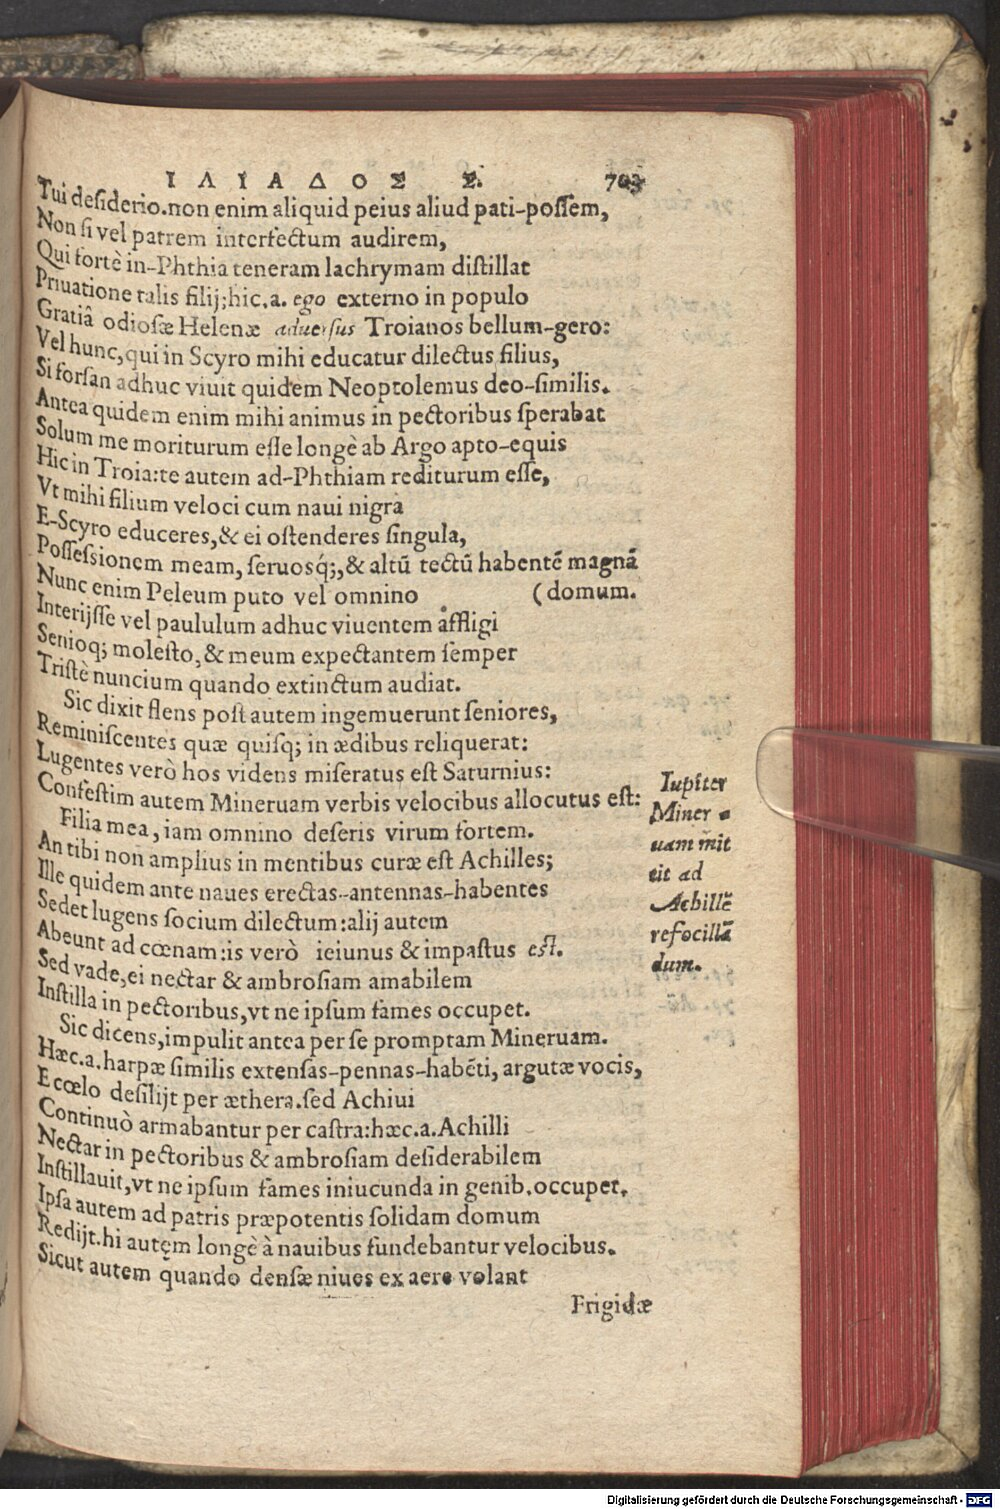 ΙΛΙΑΔΟΣ Σ. 703
Tui desiderio.non enim aliquid peius aliud pati-possem,
Non si vel patrem interfectum audirem,
Qui fortè in-Phthia teneram lachrymam distillat
Priuatione talis filij;hic.a. ego externo in populo
Gratiâ odiosæ Helenæ aduersus Troianos bellum-gero:
Vel hunc,qui in Scyro mihi educatur dilectus filius,
Si forsan adhuc viuit quidem Neoptolemus deo-similis.
Antea quidem enim mihi animus in pectoribus sperabat
Solum me moriturum esse longè ab Argo apto-equis
Hic in Troia:te autem ad-Phthiam rediturum esse,
Vt mihi filium veloci cum naui nigra
E-Scyro educeres,& ei ostenderes singula,
Possessionem meam, seruosq́;,& altũ tectũ habentẽ magnã
Nunc enim Peleum puto vel omnino (domum.
Interijsse vel paululum adhuc viuentem affligi
Senioq; molesto,& meum expectantem semper
Tristè nuncium quando extinctum audiat.
Sic dixit flens post autem ingemuerunt seniores,
Reminiscentes quæ quisq; in ædibus reliquerat:
Lugentes verò hos videns miseratus est Saturnius:
Confestim autem Mineruam verbis velocibus allocutus est:
Filia mea, iam omnino deseris virum fortem.
An tibi non amplius in mentibus curæ est Achilles;
Ille quidem ante naues erectas-antennas-habentes
Sedet lugens socium dilectum:alij autem
Abeunt ad cœnam:is verò ieiunus & impastus est.
Sed vade,ei nectar & ambrosiam amabilem
Instilla in pectoribus,vt ne ipsum fames occupet.
Sic dicens,impulit antea per se promptam Mineruam.
Hæc.a.harpæ similis extensas-pennas-habẽti, argutæ vocis,
E cœlo desilijt per æthera.sed Achiui
Continuò armabantur per castra:hæc.a.Achilli
Nectar in pectoribus & ambrosiam desiderabilem
Instillauit,vt ne ipsum fames iniucunda in genib.occupet.
Ipsa autem ad patris præpotentis solidam domum
Redijt.hi autem longè à nauibus fundebantur velocibus.
Sicut autem quando densæ niues ex aere volant
Frigidæ
Iupiter
Miner
uam mit
tit ad
Achillẽ
refocillã
dum.
Digitalisierung gefördert durch die Deutsche Forschungsgemeinschaft - DFG